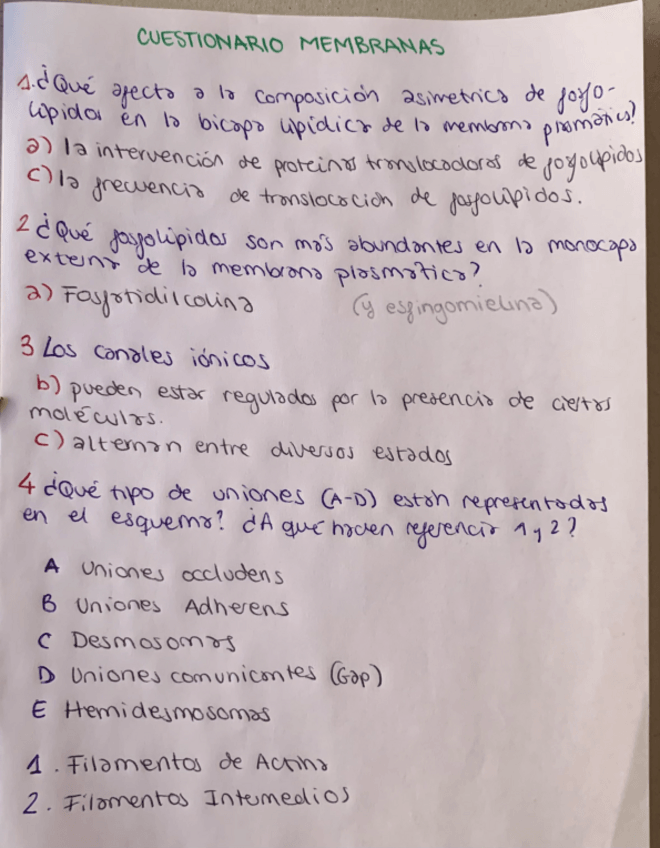 CUESTIONARIO MEMBRANAS
1. ¿Qué afecta a la composición asimetrica de fosfo-
lípidos en la bicapa lipídica de la membrana plasmática?
a) la intervención de proteinas translocadoras de fosfolípidos
c) la frecuencia de translocación de fosfolípidos.
2 ¿Qué fosfolípidos son más abundantes en la monocapa
externa de la membrana plasmática?
a) Fosfatidilcolina (y esfingomielina)
3 Los canales iónicos
b) pueden estar regulados por la presencia de ciertas
moléculas.
c) alternan entre diversos estados
4 ¿Qué tipo de uniones (A-D) están representados
en el esquema? ¿A qué hacen referencia 1 y 2?
A Uniones occludens
B Uniones Adherens
C Desmosomas
D Uniones comunicantes (Gap)
E Hemidesmosomas
1. Filamentos de Actina
2. Filamentos Intermedios